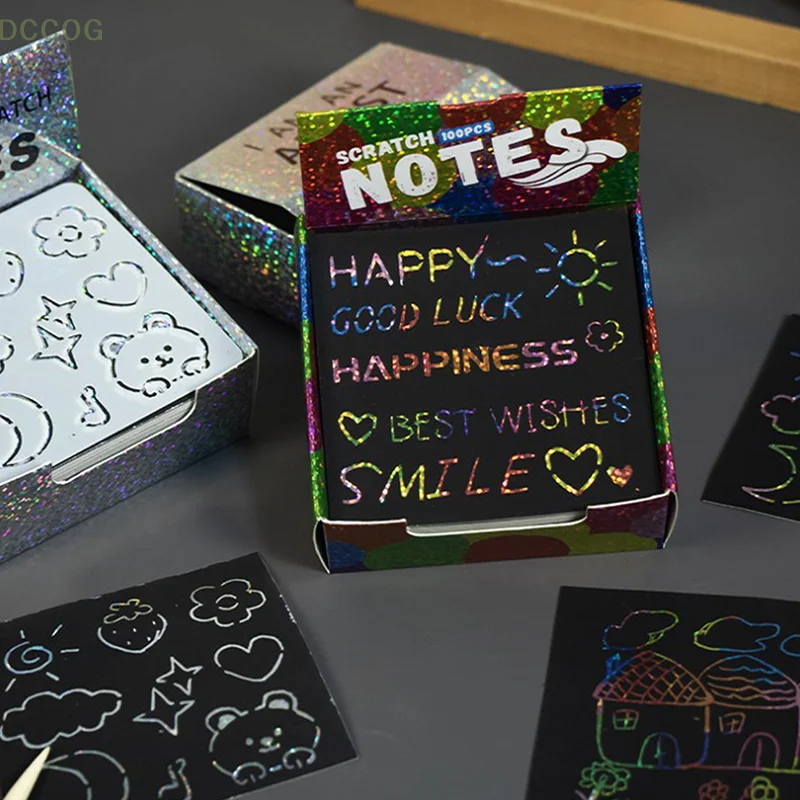 DCCOG
I AM AN
SCRATCH 100PCS
NOTES
HAPPY
GOOD LUCK
HAPPINESS
BEST WISHES
SMILE